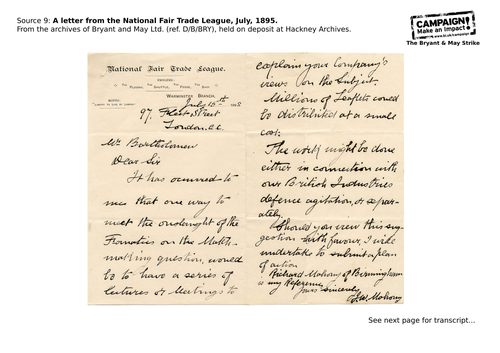 Source 9: A letter from the National Fair Trade League, July, 1895.
From the archives of Bryant and May Ltd. (ref. D/B/BRY), held on deposit at Hackney Archives.
CAMPAIGN!
Make an Impact
The Bryant & May Strike
National Fair Trade League.
Warminster Branch,
July 15th
97, Fleet Street
London. E.C.
Mr Bartholomew
Dear Sir
It has occurred to
me that one way to
meet the onslaught of the
Fanatics on the Match-
making question, would
be to have a series of
lectures or Meetings to
explain your Company's
views on the Subject.
Millions of Leaflets could
be distributed at a small
cost.
The work might be done
either in connection with
our British Industries
defence agitation, or separ-
ately.
Should you view this sug-
gestion with favour, I will
undertake to submit a plan
of action
Richard Mahony of Birmingham
is my Reference
Yours sincerely
Mahony
See next page for transcript...